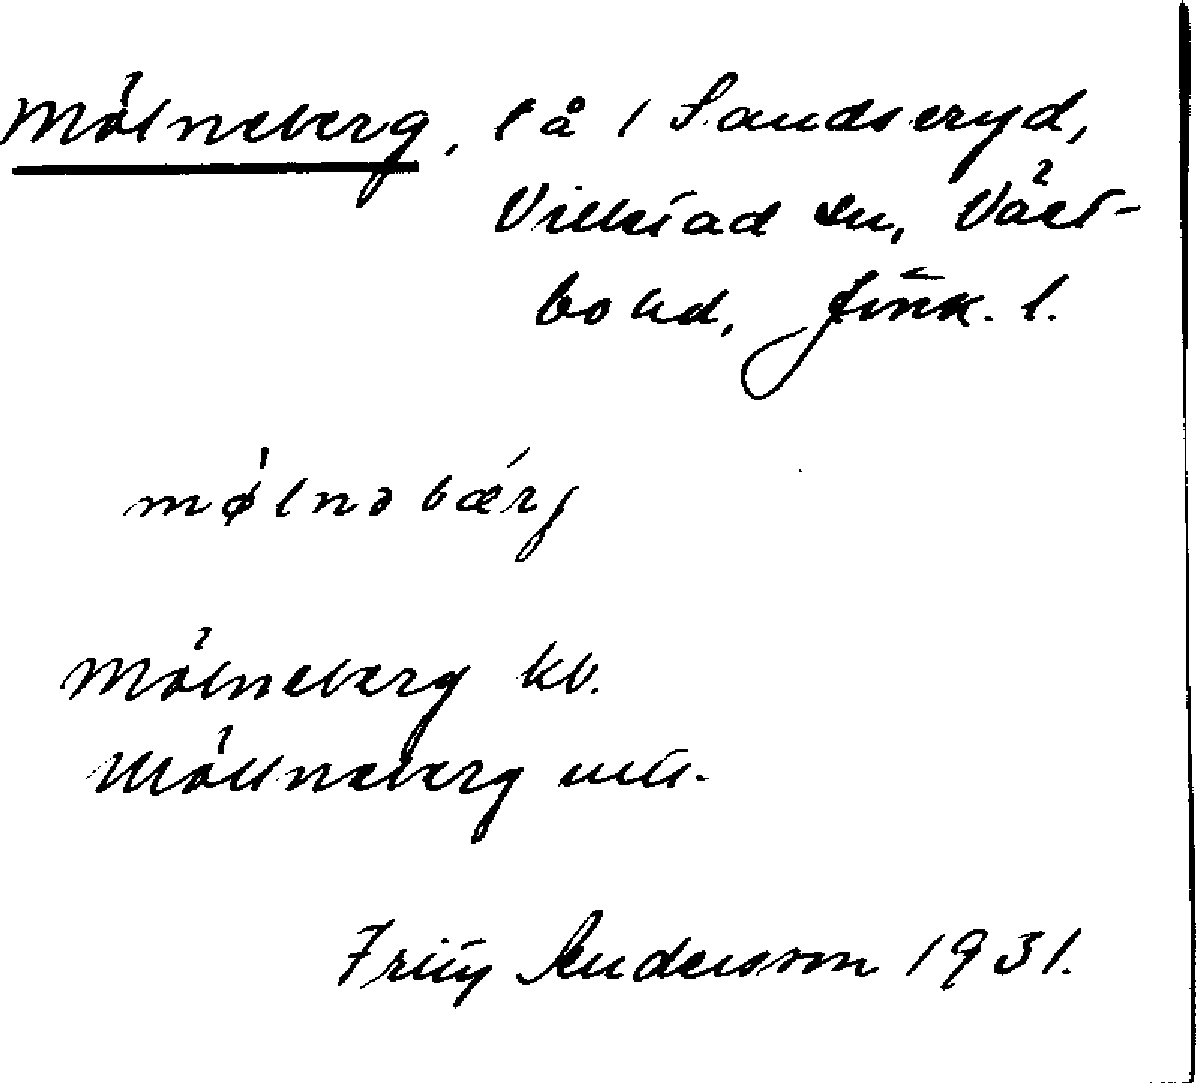 Mölneberg, lä i Sandseryd,
Villstad sn, Väst-
bo hd, Jönk. l.
mølnəbærj
Mölneberg kb.
Möllneberg
Fritz Andersson 1931.